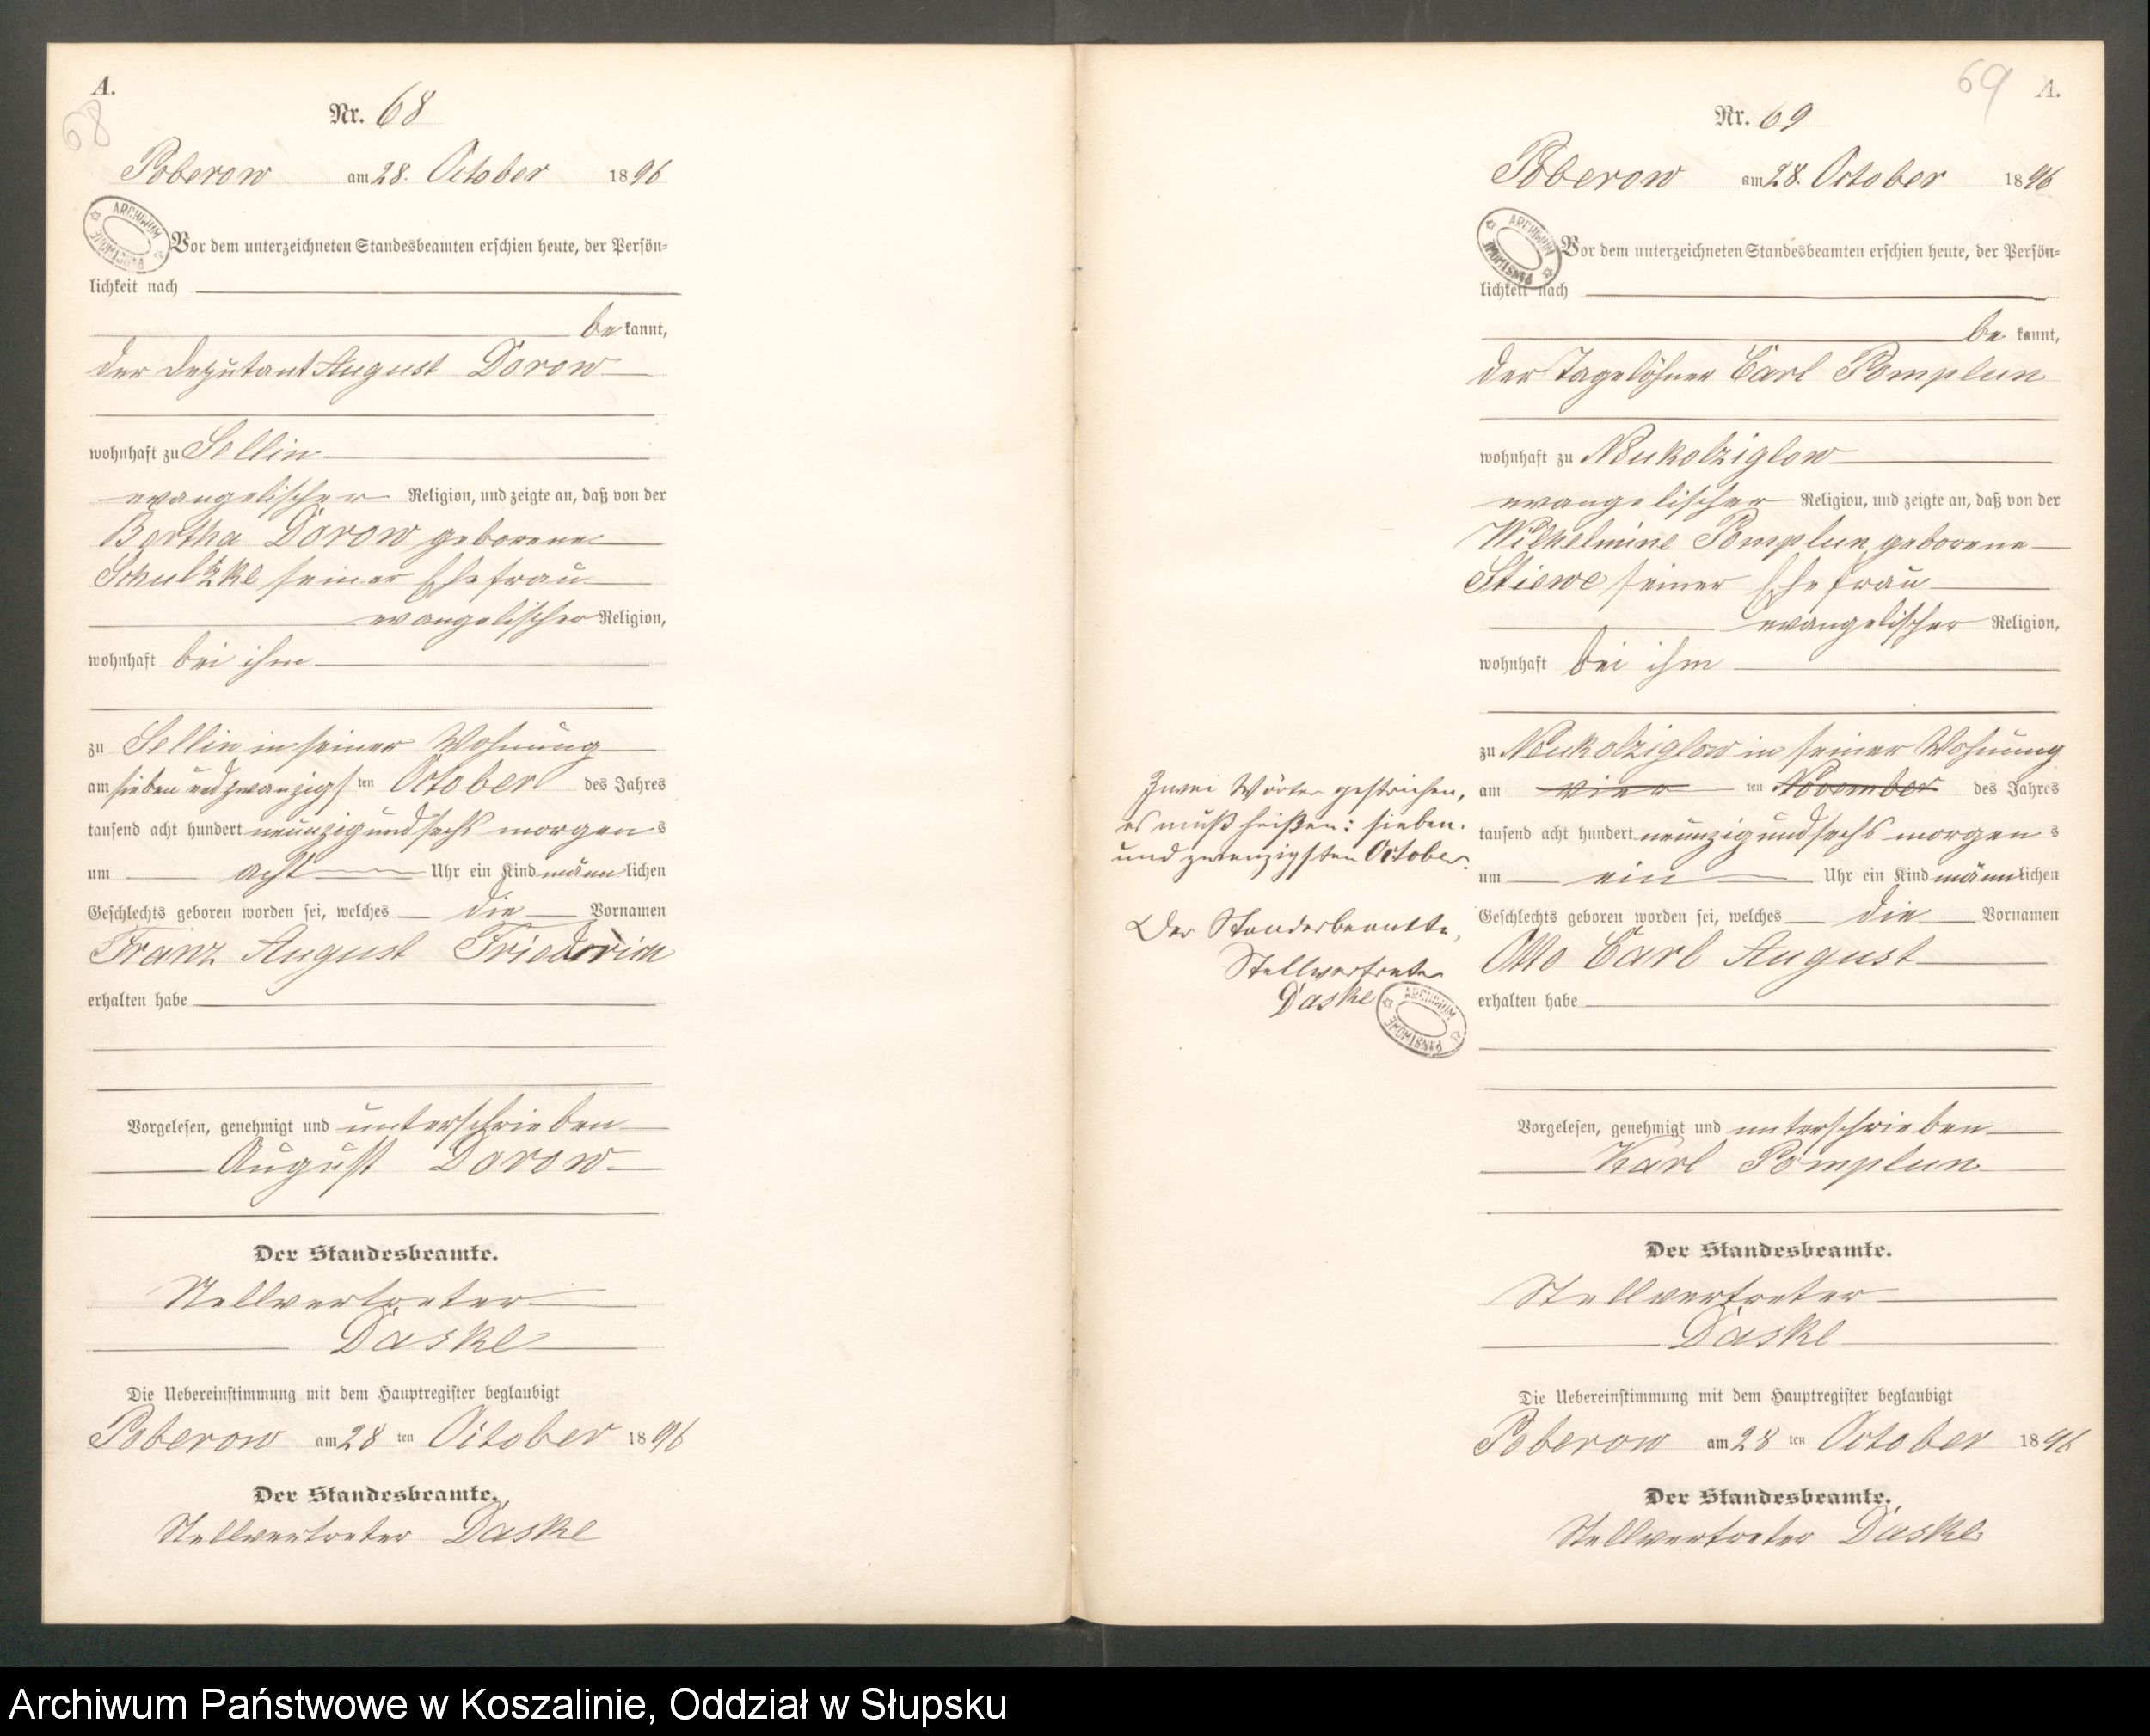 A.
68
Nr. 68
Poberow am 28. October 1896
ARCHIWUM PAŃSTWOWE
Vor dem unterzeichneten Standesbeamten erschien heute, der Persön=
lichkeit nach
be kannt,
der Deputant August Dorow
wohnhaft zu Sellin
evangelischer Religion, und zeigte an, daß von der
Bertha Dorow geborene
Schultzke seiner Ehefrau
evangelischer Religion,
wohnhaft bei ihm
zu Sellin in seiner Wohnung
am sieben und zwanzigs ten October des Jahres
tausend acht hundert neunzig und sechs morgen s
um acht Uhr ein Kind männ lichen
Geschlechts geboren worden sei, welches die Vornamen
Franz August Friedrich
erhalten habe
Vorgelesen, genehmigt und unterschrieben
August Dorow
Der Standesbeamte.
Stellvertreter
Daske
Die Uebereinstimmung mit dem Hauptregister beglaubigt
Poberow am 28 ten October 1896
Der Standesbeamte.
Stellvertreter Daske
69 A.
Nr. 69
Poberow am 28. October 1896
ARCHIWUM PAŃSTWOWE
Vor dem unterzeichneten Standesbeamten erschien heute, der Persön=
lichkeit nach
be kannt,
der Tagelöhner Carl Pomplun
wohnhaft zu Neukolziglow
evangelischer Religion, und zeigte an, daß von der
Wilhelmine Pomplun geborene
Stiewe seiner Ehefrau
evangelischer Religion,
wohnhaft bei ihm
zu Neukolziglow in seiner Wohnung
am vier ten November des Jahres
tausend acht hundert neunzig und sechs morgen s
um ein Uhr ein Kind männ lichen
Geschlechts geboren worden sei, welches die Vornamen
Otto Carl August
erhalten habe
Zwei Wörter gestrichen,
es muß heißen: sieben.
und zwanzigsten October.
Der Standesbeamte,
Stellvertreter
Daske
ARCHIWUM PAŃSTWOWE
Vorgelesen, genehmigt und unterschrieben
Karl Pomplun
Der Standesbeamte.
Stellvertreter
Daske
Die Uebereinstimmung mit dem Hauptregister beglaubigt
Poberow am 28 ten October 1896
Der Standesbeamte.
Stellvertreter Daske
Archiwum Państwowe w Koszalinie, Oddział w Słupsku